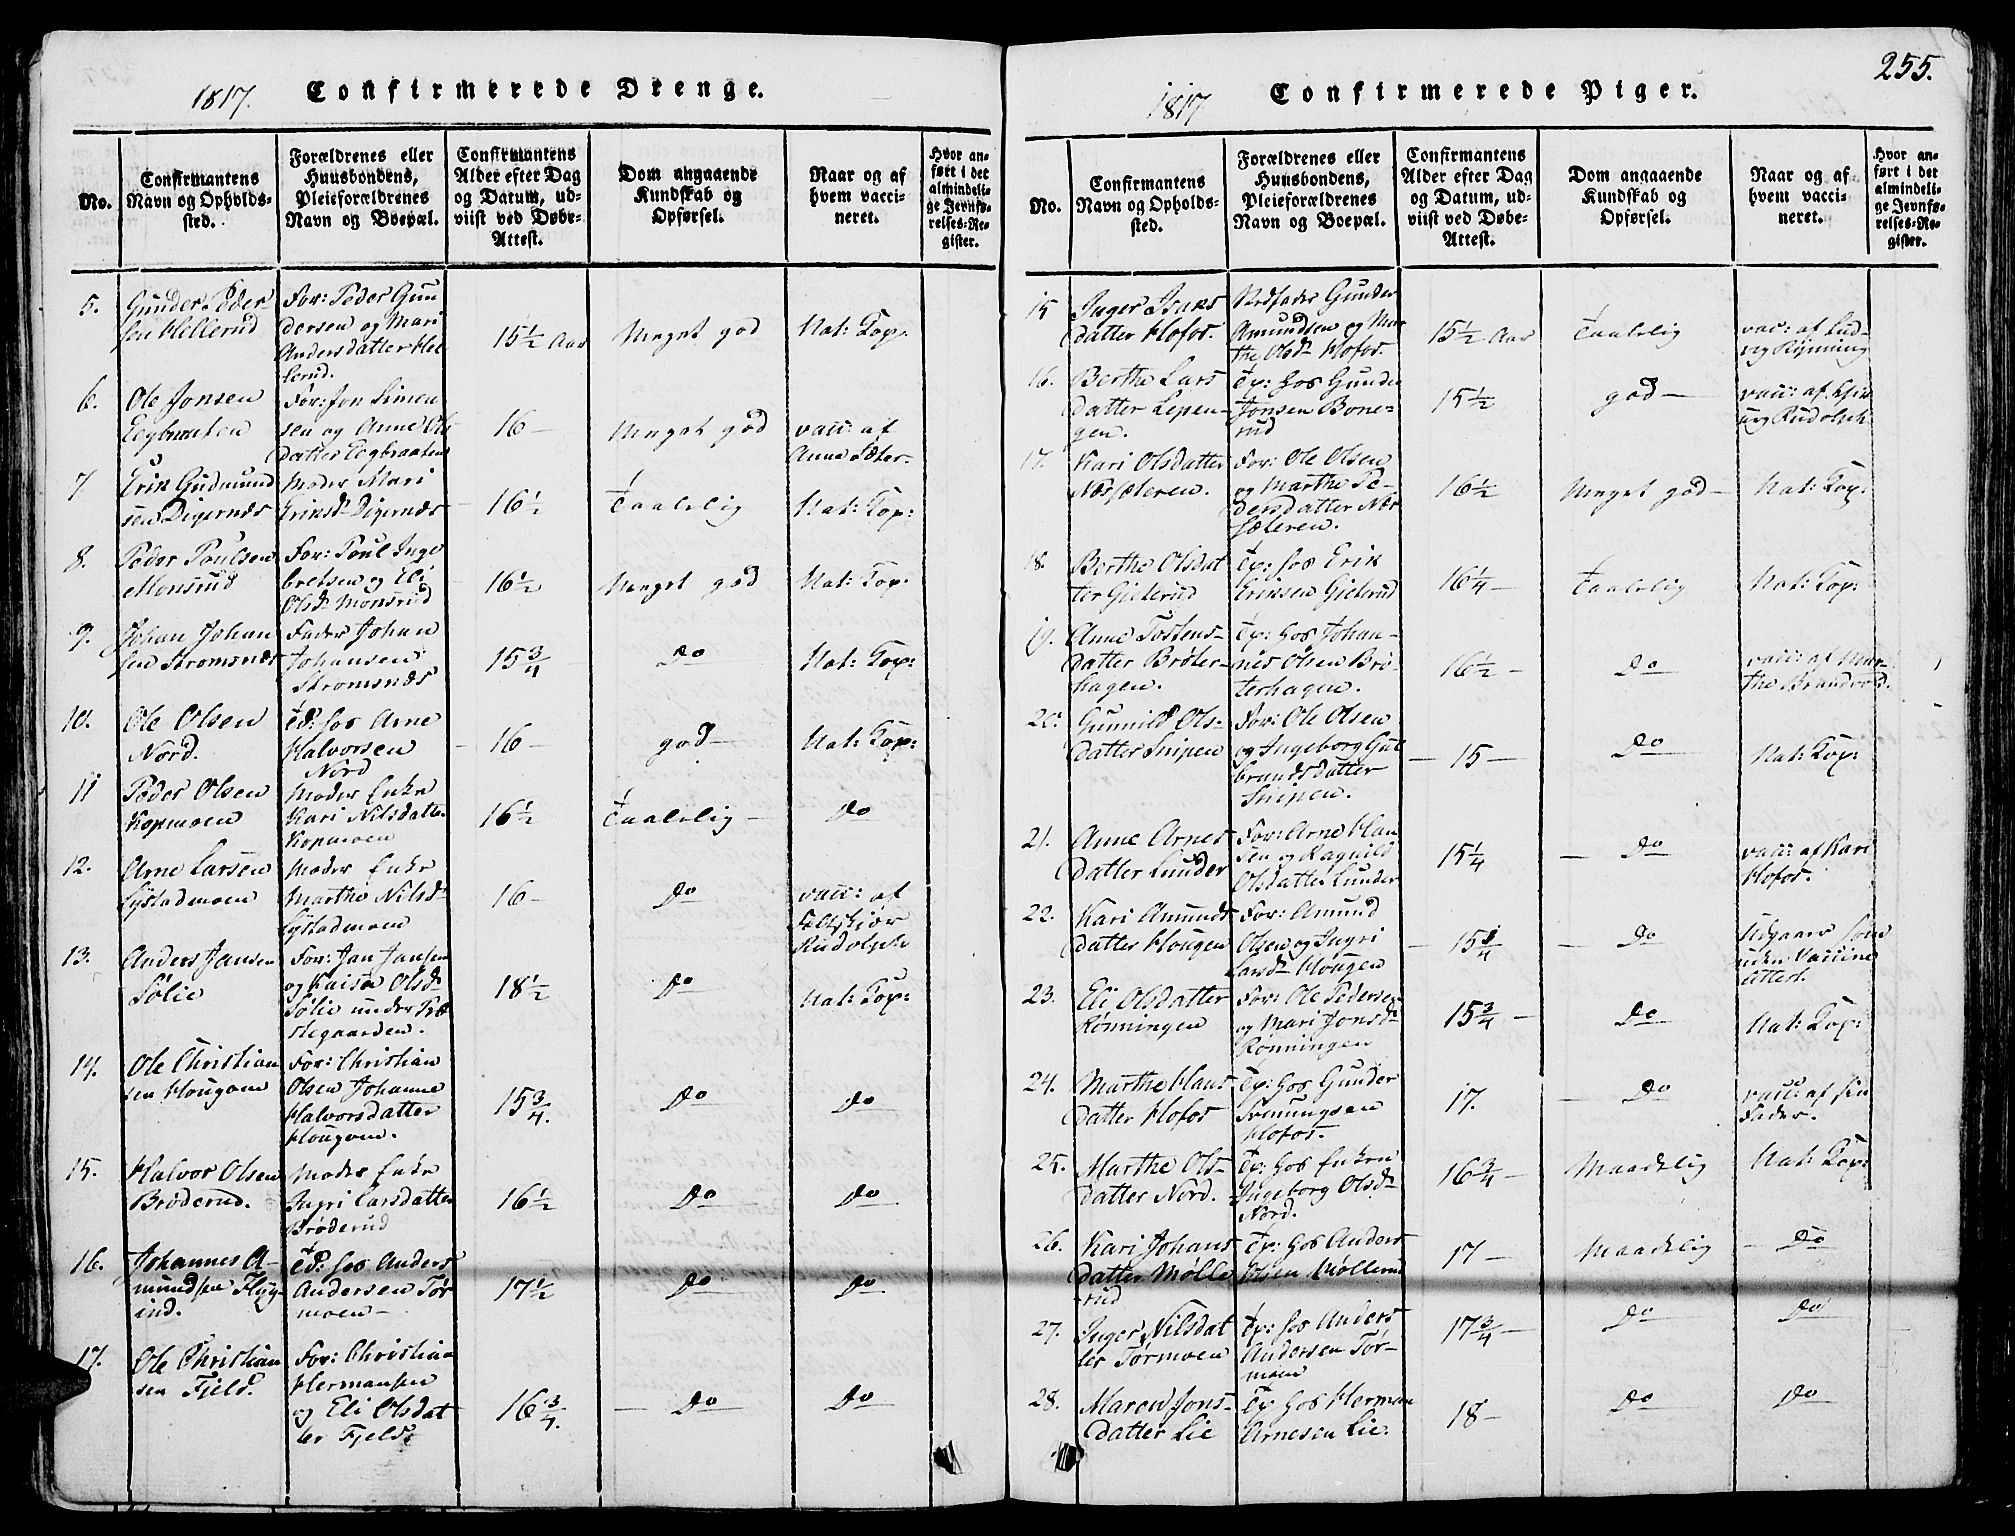 1817. Confirmerede Drenge.
No.
Confirmantens
Navn og Opholds-
sted.
Forældrenes eller
Huusbondens,
Pleieforældrenes
Navn og Boepæl.
Confirmantens
Alder efter Dag
og Datum, ud-
viist ved Døbe-
Attest.
Dom angaaende
Kundskab og
Opførsel.
Naar og af
hvem vacci-
neret.
Hvor an-
ført i det
almindeli-
ge Jevnfø-
relses-Re-
gister.
5.
Gunder Peder
sen Hellerud
For: Peder Gun
dersen og Mari
Andersdatter Hel
lerud.
15½ Aar
Meget god
Nat: Kop:
6.
Ole Jonsen
Eegbraaten
For: Jon Simen
sen og Anne Ols
datter Eegbraaten
16 –
Meget god
vacc: af
Anne Sæter-
7
Erik Gudmund
sen Digernæs
Moder Mari
Eriksd. Digernæs
16½
Taalelig
Nat: Kop:
8.
Peder Poulsen
Monsrud
For: Poul Inge
bretsen og Eli
Olsd. Monsrud
16½
Meget god
Nat: Kop:
9.
Johan Johan
sen Stromsnæs
Fader Johan
Johansen
Stromsnæs
15¾
Do
Nat: Kop:
10.
Ole Olsen
Nord.
Tp: hos Arne
Halvorsen
Nord
– 16 –
god –
Nat: Kop:
11
Peder Olsen
Kopmoen
Moder Enke
Kari Nilsdatte
Kopmoen
16½
Taalelig –
Do
12.
Arne Larsen
Lystadmoen
Moder Enke
Marthe Nilsd.
Lystadmoen
16 –
Do
vacc: af
Feltskjær
Rudolph
13.
Anders Jansen
Sølie
For: Jan Jansen
og Kaisa Olsd.
Sølie under Præ
stegaarden.
18½
Do
Nat: Kop:
14.
Ole Christian
sen Hougom
For: Christian
Olsen Johanne
Halvorsdatter
Hougom.
15¾.
Do
Do
15.
Halvor Olsen
Brøderud.
Moder Enke
Ingri Larsdatter
Brøderud
16½
Do
Do
16.
Johannes A-
mundsen Flyg-
ind.
Tp: hos Anders
Andersen Tør
moen –
17½
Do
Do
17.
Ole Christian
sen Fjeld.
For: Christian
Hermansen
og Eli Olsdat
ter Fjeld.
16¾.
– Do
Do
255.
1817 Confirmerede Piger.
No.
Confirmantens
Navn og Opholds-
sted.
Forældrenes eller
Huusbondens,
Pleieforældrenes
Navn og Boepæl.
Confirmantens
Alder efter Dag
og Datum, ud-
viist ved Døbe-
Attest.
Dom angaaende
Kundskab og
Opførsel.
Naar og af
hvem vacci-
neret.
Hvor an-
ført i det
almindeli-
ge Jevnfø-
relses-Re-
gister.
15
Inger Isaks
datter Hofos.
Stedfader Gunder
Amundsen og Mar
the Olsd. Hofos.
15½ Aar
Taalelig
vac: af Lud-
vig Rønning
16.
Berthe Lars
datter Lepen-
gen.
Tp: hos Gunder
Jonsen Bone-
rud
15½
god –
vacc: af
Rudolph
17.
Kari Olsdatter
Næsseteren.
For: Ole Olsen
og Marthe Pe-
dersdatter Næs
sæteren.
16½
Meget god –
Nat: Kop:
18.
Berthe Olsdat
ter Gieterud
Tp: hos Erik
Eriksen Gieterud
16¼ –
Taalelig
Nat: Kop:
19.
Anne Tostens-
datter Brøter-
hagen.
Tp: hos Johan-
nes Olsen Brø-
terhagen.
16½ –
Do
vacc: af Mar-
the Brandvold.
20.
Gunnild Ols-
datter Snipen
For: Ole Olsen
og Ingeborg Gul
brandsdatter
Snipen.
– 15 –
Do
Nat: Kop:
21.
Anne Arnes
datter Lunder
For: Arne Han
sen og Ragnild
Olsdatter Lunder
15¼
– Do
vacc: af Kari
Hofos.
22.
Kari Amunds
datter Hougen
For: Amund
Olsen og Ingri
Larsd. Hougen
– 15¾
– Do
Udgaaer som
uden Vaccine
Attest.
23.
Eli Olsdatter
Rønningen
For: Ole Pedersen
og Mari Jonsd.
Rønningen
15¾ –
Do
Nat: Kop:
24.
Marthe Hans
datter Hofos
Tp: hos Gunder
Svenungsen
Hofos.
17.
– Do
vacc: af sin
Fader.
25.
Marthe Ols-
datter Nord.
Tp: hos Enken
Ingeborg Olsd.
Nord.
16¾ –
Maadelig
Nat: Kop:
26.
Kari Johans
datter Mølle
rud
Tp: hos Anders
Olsen Møllerud
17 –
Maadelig
– Do
27.
Inger Nilsdat
ter Tørmoen
Tp: hos Anders
Andersen Tør-
moen
17¾ –
Do
Do
28.
Maren Jons-
datter Lie
Tp: hos Herman
Arnesen Lie.
18 –
Do
Do